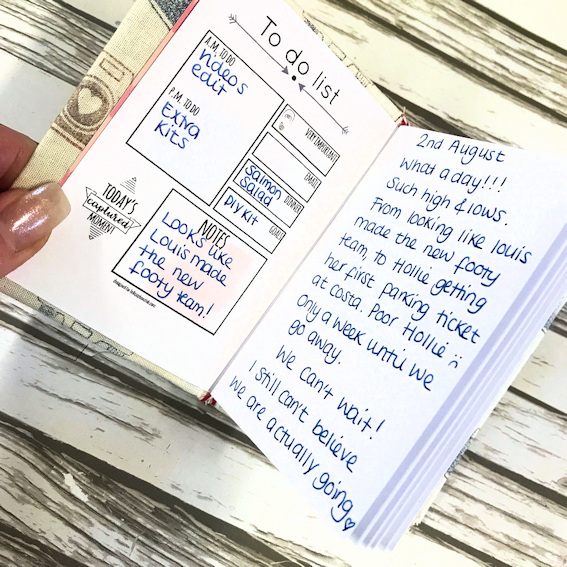 To do list
A.M. TO DO
videos
edit
P.M. TO DO
Extra
Kits
VERY IMPORTANT
EMAILS
Salmon
Salad
DINNER
DIY Kit
GOALS
TODAY'S
captured
MOMENT
NOTES
Looks like
Louis made
the new
footy team!
2nd August
What a day!!!
Such high & lows.
From looking like Louis
made the new footy
team, to Hollie getting
her first parking ticket
at costa. Poor Hollie :(
only a week until we
go away.
We can't wait!
I still can't believe
we are actually going♡